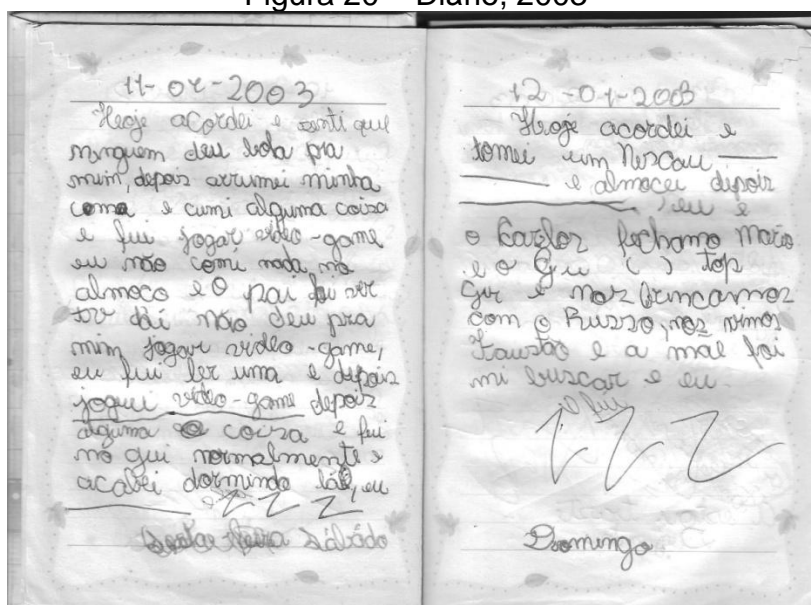 Figura 20 – Diário, 2003
11-04-2003
Hoje acordei e senti que
ninguem deu bola pra
mim, depois arrumei minha
cama e cumi alguma coisa
e fui jogar video-game
eu não comi nada no
almoço e O pai foi ver
tv daí não deu pra
mim jogar video-game,
eu fui ler uma e depois
joguei video-game depois
alguma coisa e fui
no gui normalmente e
acabei dormindo lá, eu
e ZZZ
Sábado
12-04-2003
Hoje acordei e
tomei um Nescau
e almocei depois
eu e
o Carlos fechamo Mario
e o Gui ( ) top
Gir e noz brincamoz
com o Russo, noz vimos
Faustão e a mãe foi
mi buscar e eu
e fui
ZZZ
Domingo